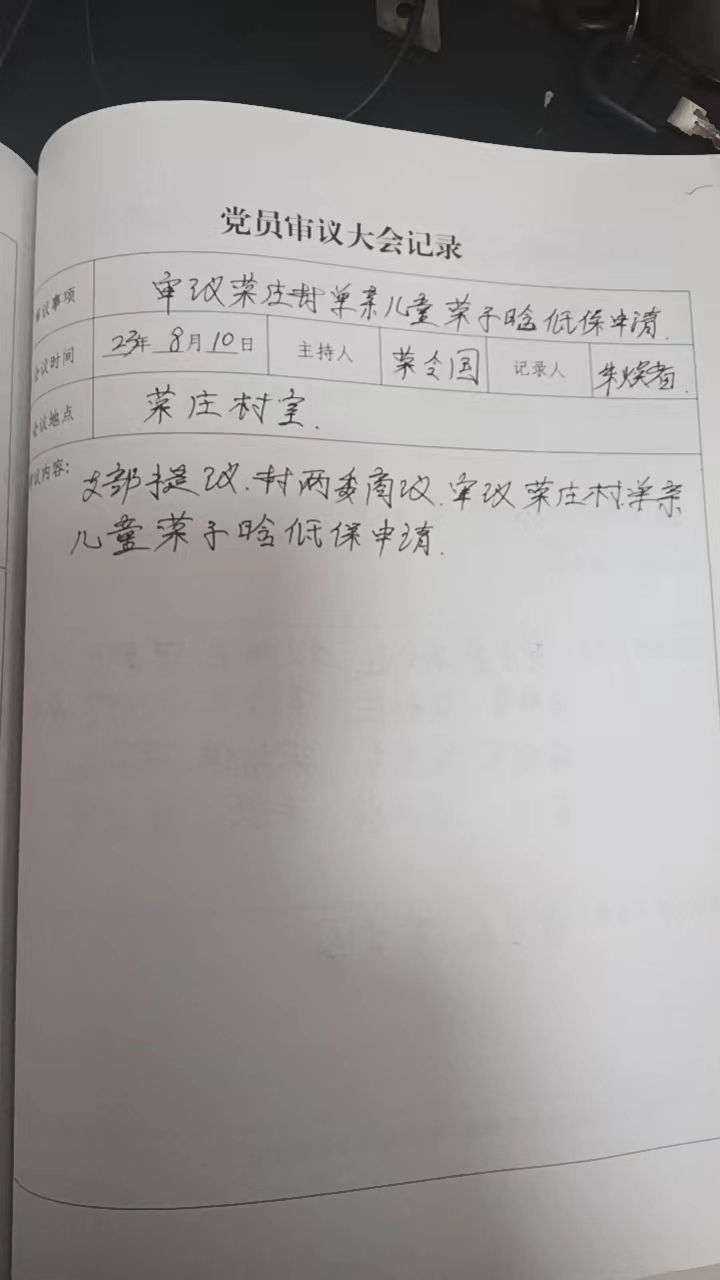 党员审议大会记录
审议事项 审议荣庄村单亲儿童荣子晗低保申请.
会议时间 23年 8月10日 主持人 荣令国 记录人 朱焕
会议地点 荣庄村室.
审议内容: 支部提议.村两委商议.审议荣庄村单亲
儿童荣子晗低保申请.